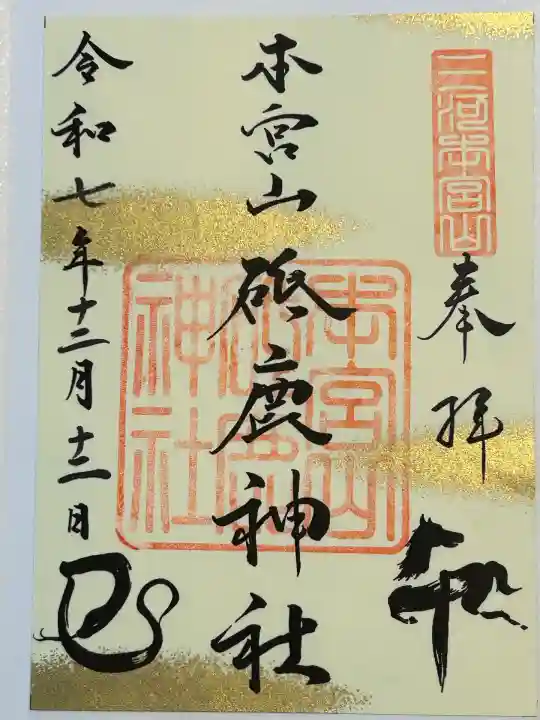 三河本宮山
奉拝
本宮山
砥鹿神社
本宮山砥鹿神社
令和七年十二月十二日
巳